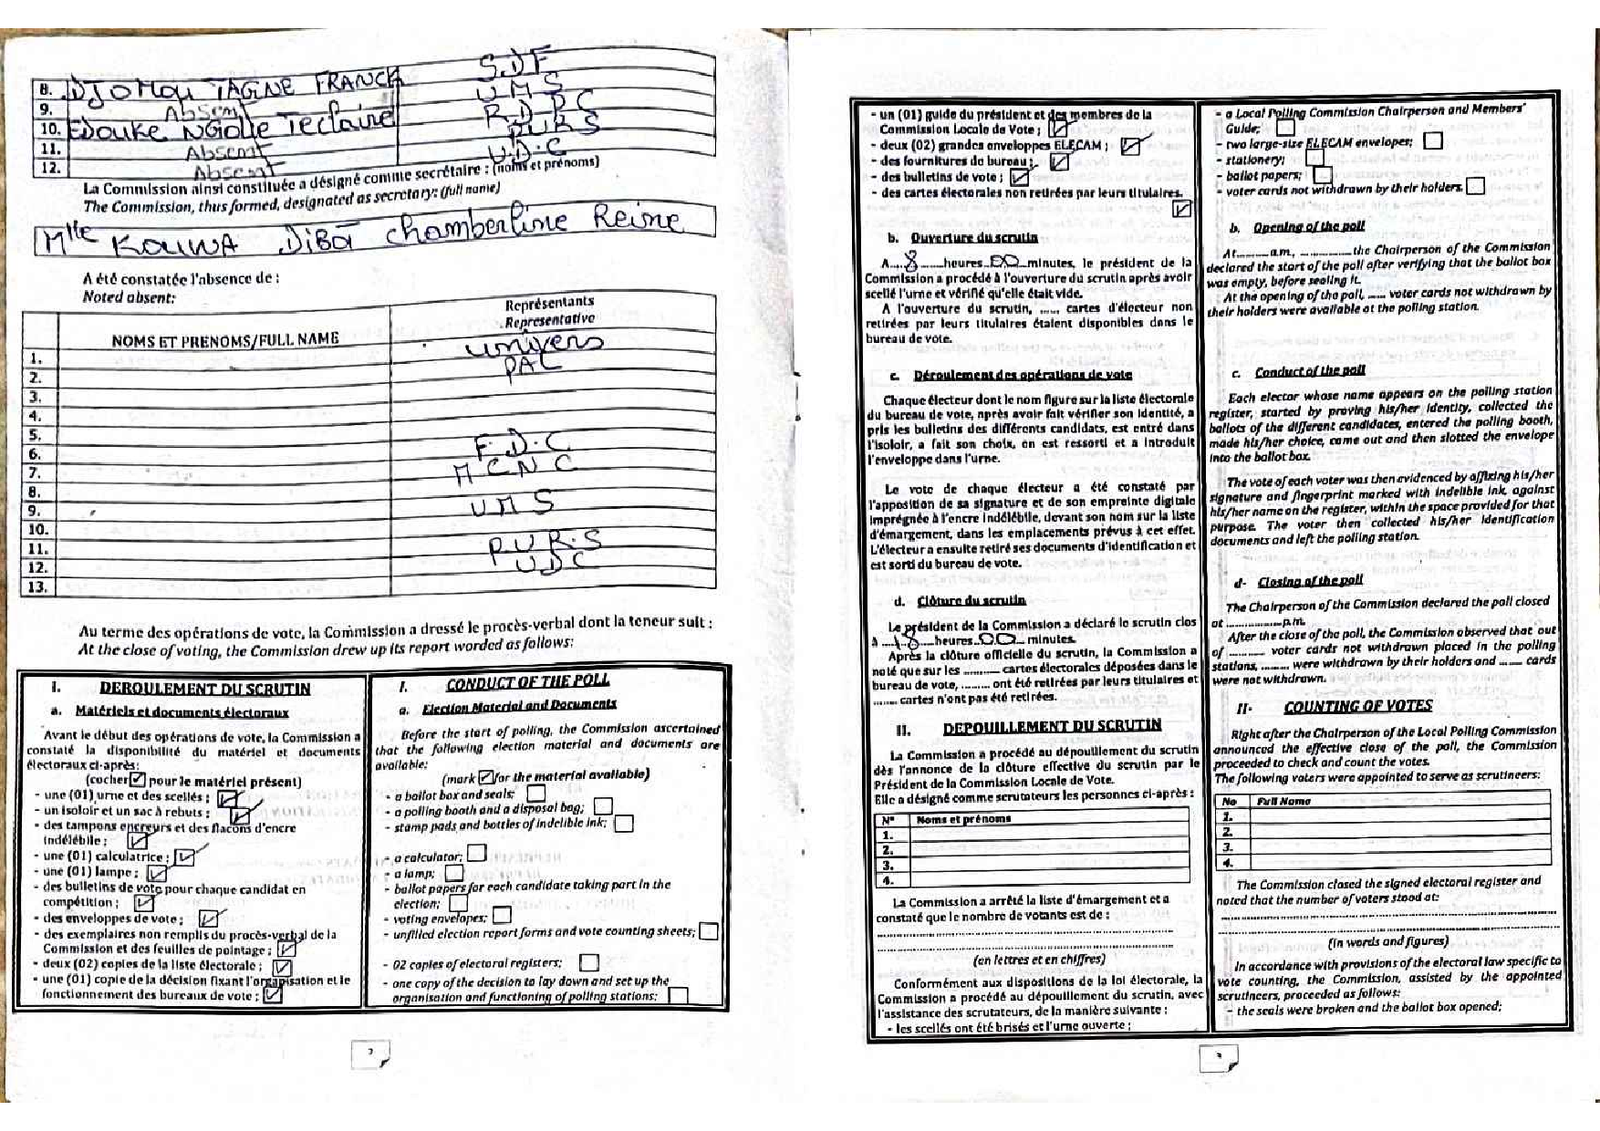 8. DJOMOU TAGNE FRANCK S.D.F
9. Absent U.M.S
10. EDOUKE NGIOLLE Teclaire R.D.P.C
11. Absent P.U.R.S
12. Absent U.D.C
La Commission ainsi constituée a désigné comme secrétaire : (noms et prénoms)
The Commission, thus formed, designated as secretary: (full name)
Mlle KOUWA DIBA chamberline Reine
A été constatée l'absence de :
Noted absent:
NOMS ET PRENOMS/FULL NAME
Représentants
Representative
1. univers
2. PAL
3.
4.
5.
6. F.D.C
7. M C N C
8.
9. U M S
10.
11. P.U.R.S
12. UDC
13.
Au terme des opérations de vote, la Commission a dressé le procès-verbal dont la teneur suit :
At the close of voting, the Commission drew up its report worded as follows:
I. DEROULEMENT DU SCRUTIN
a. Matériels et documents électoraux
Avant le début des opérations de vote, la Commission a
constaté la disponibilité du matériel et documents
électoraux ci-après:
(cocher ☑ pour le matériel présent)
- une (01) urne et des scellés ; ☑
- un isoloir et un sac à rebuts ; ☑
- des tampons encreurs et des flacons d'encre
indélébile ; ☑
- une (01) calculatrice ; ☑
- une (01) lampe ; ☑
- des bulletins de vote pour chaque candidat en
compétition ; ☑
- des enveloppes de vote ; ☑
- des exemplaires non remplis du procès-verbal de la
Commission et des feuilles de pointage ; ☑
- deux (02) copies de la liste électorale ; ☑
- une (01) copie de la décision fixant l'organisation et le
fonctionnement des bureaux de vote ; ☑
I. CONDUCT OF THE POLL
a. Election Material and Documents
Before the start of polling, the Commission ascertained
that the following election material and documents are
available:
(mark ☑ for the material available)
- a ballot box and seals; ☐
- a polling booth and a disposal bag; ☐
- stamp pads and bottles of indelible ink; ☐
- a calculator; ☐
- a lamp; ☐
- ballot papers for each candidate taking part in the
election; ☐
- voting envelopes; ☐
- unfilled election report forms and vote counting sheets; ☐
- 02 copies of electoral registers; ☐
- one copy of the decision to lay down and set up the
organisation and functioning of polling stations; ☐
2
- un (01) guide du président et des membres de la
Commission Locale de Vote ; ☑
- deux (02) grandes enveloppes ELECAM ; ☑
- des fournitures de bureau ; ☑
- des bulletins de vote ; ☑
- des cartes électorales non retirées par leurs titulaires.
☑
b. Ouverture du scrutin
A....8......heures..00...minutes, le président de la
Commission a procédé à l'ouverture du scrutin après avoir
scellé l'urne et vérifié qu'elle était vide.
A l'ouverture du scrutin, ...... cartes d'électeur non
retirées par leurs titulaires étaient disponibles dans le
bureau de vote.
c. Déroulement des opérations de vote
Chaque électeur dont le nom figure sur la liste électorale
du bureau de vote, après avoir fait vérifier son identité, a
pris les bulletins des différents candidats, est entré dans
l'isoloir, a fait son choix, en est ressorti et a introduit
l'enveloppe dans l'urne.
Le vote de chaque électeur a été constaté par
l'apposition de sa signature et de son empreinte digitale
imprégnée à l'encre indélébile, devant son nom sur la liste
d'émargement, dans les emplacements prévus à cet effet.
L'électeur a ensuite retiré ses documents d'identification et
est sorti du bureau de vote.
d. Clôture du scrutin
Le président de la Commission a déclaré le scrutin clos
à ....18......heures...00... minutes.
Après la clôture officielle du scrutin, la Commission a
noté que sur les ........... cartes électorales déposées dans le
bureau de vote, ......... ont été retirées par leurs titulaires et
........ cartes n'ont pas été retirées.
II. DEPOUILLEMENT DU SCRUTIN
La Commission a procédé au dépouillement du scrutin
dès l'annonce de la clôture effective du scrutin par le
Président de la Commission Locale de Vote.
Elle a désigné comme scrutateurs les personnes ci-après :
N° Noms et prénoms
1.
2.
3.
4.
La Commission a arrêté la liste d'émargement et a
constaté que le nombre de votants est de :
(en lettres et en chiffres)
Conformément aux dispositions de la loi électorale, la
Commission a procédé au dépouillement du scrutin, avec
l'assistance des scrutateurs, de la manière suivante :
- les scellés ont été brisés et l'urne ouverte ;
- a Local Polling Commission Chairperson and Members'
Guide; ☐
- two large-size ELECAM envelopes; ☐
- stationery; ☐
- ballot papers; ☐
- voter cards not withdrawn by their holders. ☐
b. Opening of the poll
At..........a.m, ...............the Chairperson of the Commission
declared the start of the poll after verifying that the ballot box
was empty, before sealing it.
At the opening of the poll, ...... voter cards not withdrawn by
their holders were available at the polling station.
c. Conduct of the poll
Each elector whose name appears on the polling station
register, started by proving his/her identity, collected the
ballots of the different candidates, entered the polling booth,
made his/her choice, came out and then slotted the envelope
into the ballot box.
The vote of each voter was then evidenced by affixing his/her
signature and fingerprint marked with indelible ink, against
his/her name on the register, within the space provided for that
purpose. The voter then collected his/her identification
documents and left the polling station.
d- Closing of the poll
The Chairperson of the Commission declared the poll closed
at ...............p.m.
After the close of the poll, the Commission observed that out
of ............ voter cards not withdrawn placed in the polling
stations, ......... were withdrawn by their holders and ....... cards
were not withdrawn.
II- COUNTING OF VOTES
Right after the Chairperson of the Local Polling Commission
announced the effective close of the poll, the Commission
proceeded to check and count the votes.
The following voters were appointed to serve as scrutineers:
No Full Name
1.
2.
3.
4.
The Commission closed the signed electoral register and
noted that the number of voters stood at:
(in words and figures)
In accordance with provisions of the electoral law specific to
vote counting, the Commission, assisted by the appointed
scrutineers, proceeded as follows:
- the seals were broken and the ballot box opened;
3